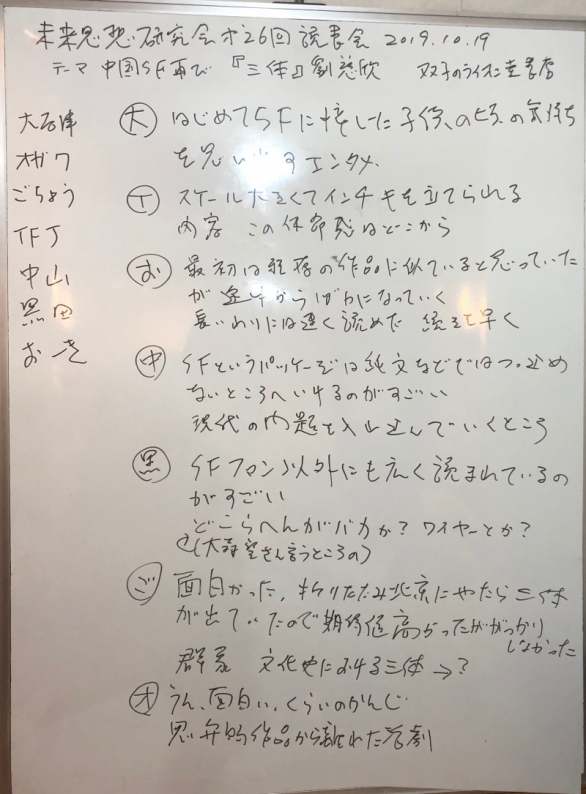 未来思想研究会 第26回 読書会 2019.10.19
テーマ 中国SF再び 『三体』劉慈欣 双子のライオン堂書店
大石津
オガワ
ごちょう
TFJ
中山
黒田
おーき
大 はじめてSFに接した子供のころの気持ち
を思い出すエンタメ
T スケール大きくてインチキを立てられる
内容 この体節感はどこから
お 最初は既存の作品に似ていると思っていた
が途中からばかになっていく
長いわりには速く読めた 続きを早く
中 SFというパッケージでは純文などではつっ込め
ないところへいけるのがすごい
現代の問題を入れ込んでいくところ
黒 SFファン以外にも広く読まれているの
がすごい
どこらへんがバカか? ワイヤーとか?
(大森望さん言うところの)
ご 面白かった、折りたたみ北京にやたら三体
が出ていたので期待値高かったががっかり
しなかった
群像 文化史における三体→?
オ うん、面白い、くらいのかんじ
思弁的作品から離れた活劇